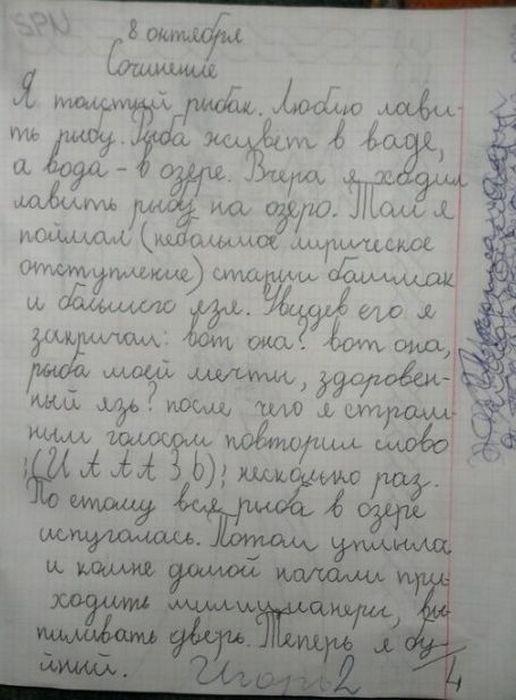 SPN
8 октября
Сочинение
Я толстый рыбак. Люблю лави-
ть рыбу. Рыба живет в ваде,
а вода - в озере. Вчера я ходил
лавить рыбу на озеро. Там я
поймал (небольшое лирическое
отступление) старии башмак
и большого язя. Увидев его я
закричал: вот она? вот она,
рыба моей мечты, здоровен-
ный язь? после чего я страш-
ным голосом повторил слово
;(И А А А З Ь); несколько раз.
По етому вся рыба в озере
испугалась. Потом уплыла
и комне домой начали при-
ходить милиционеры, вы-
пиливать дверь. Теперь я бу-
йный. Игорь 2/4